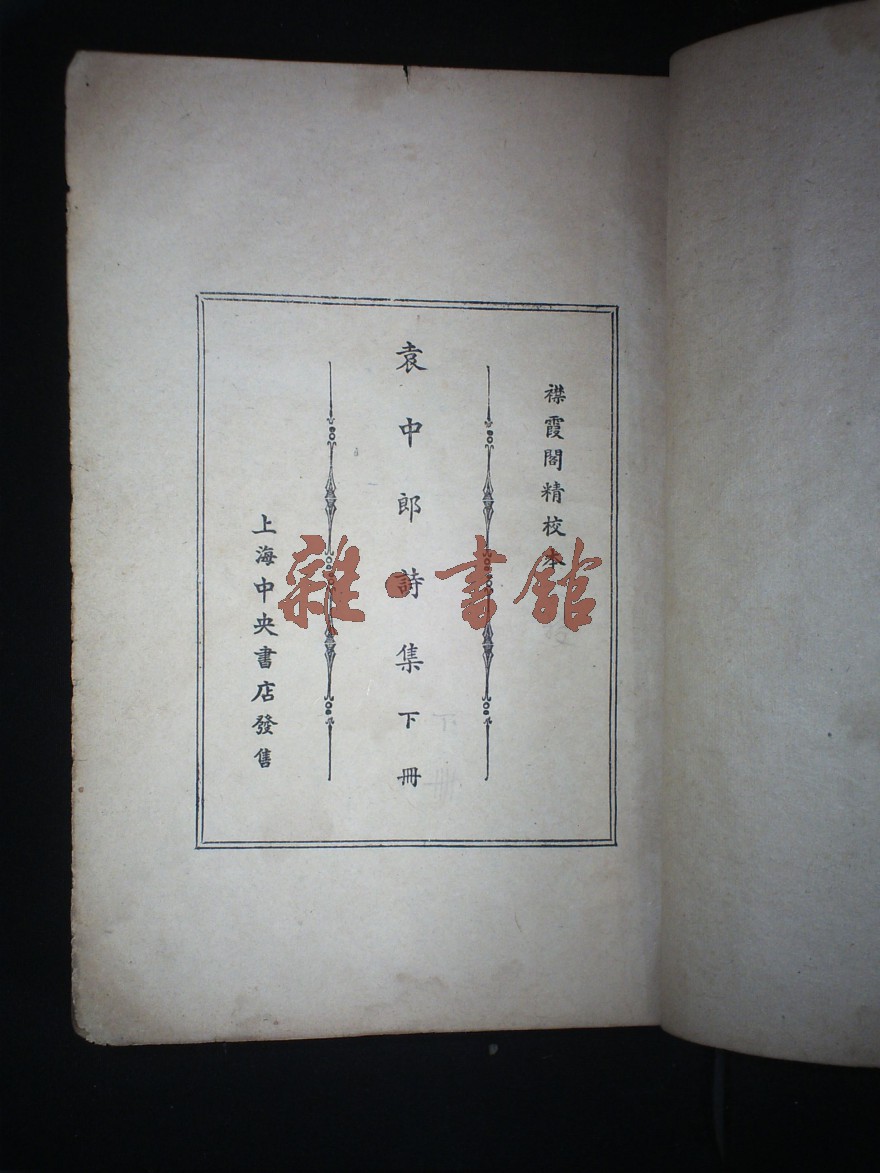 襟霞閣精校本
袁中郎詩集下冊
上海中央書店發售
雜·書館